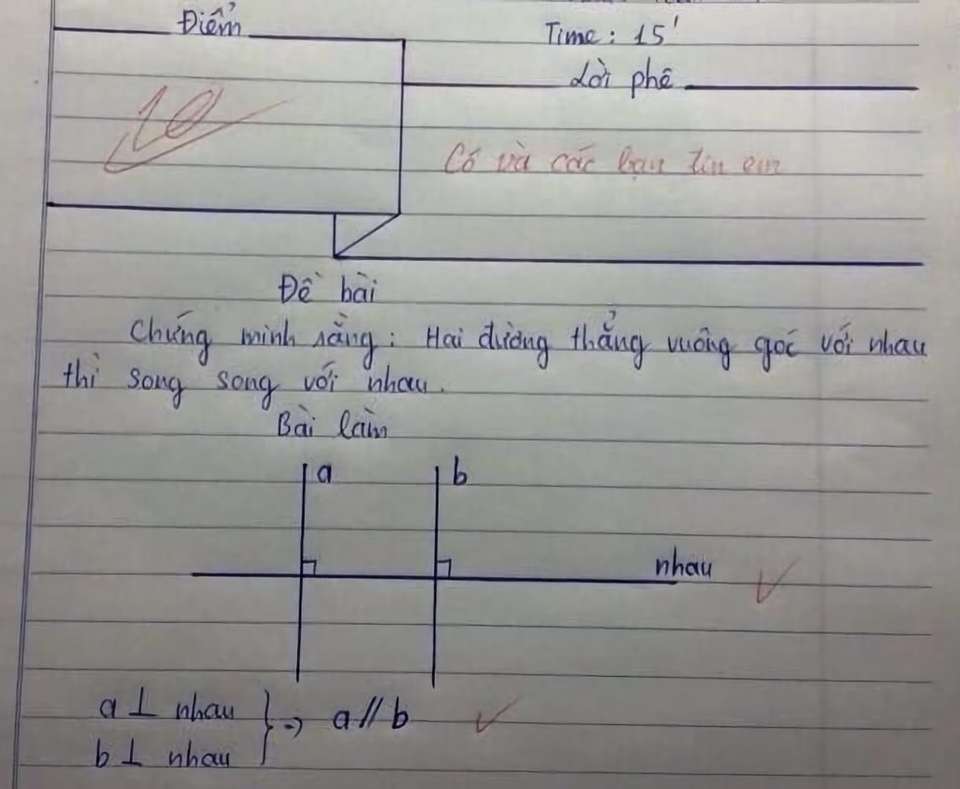 Điểm
Time: 15'
Lời phê
10
Cô và các bạn tin em
Đề bài
Chứng minh rằng: Hai đường thẳng vuông góc với nhau
thì song song với nhau.
Bài làm
a
b
nhau
a ⊥ nhau
b ⊥ nhau
} => a // b